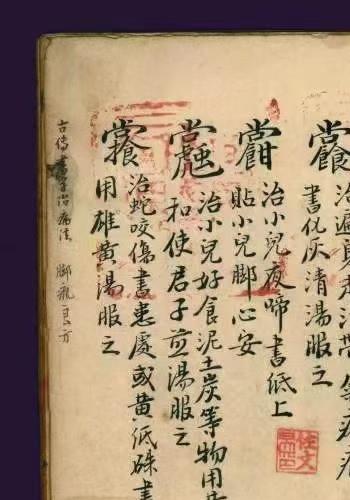 治遍身走注
書化灰清湯服之
治小兒夜啼書低上
貼小兒腳心安
治小兒好食泥土炭等物用
和使君子煎湯服之
治蛇咬傷書患處或黃低硃書
用雄黃湯服之
古傳書字治病法
良方